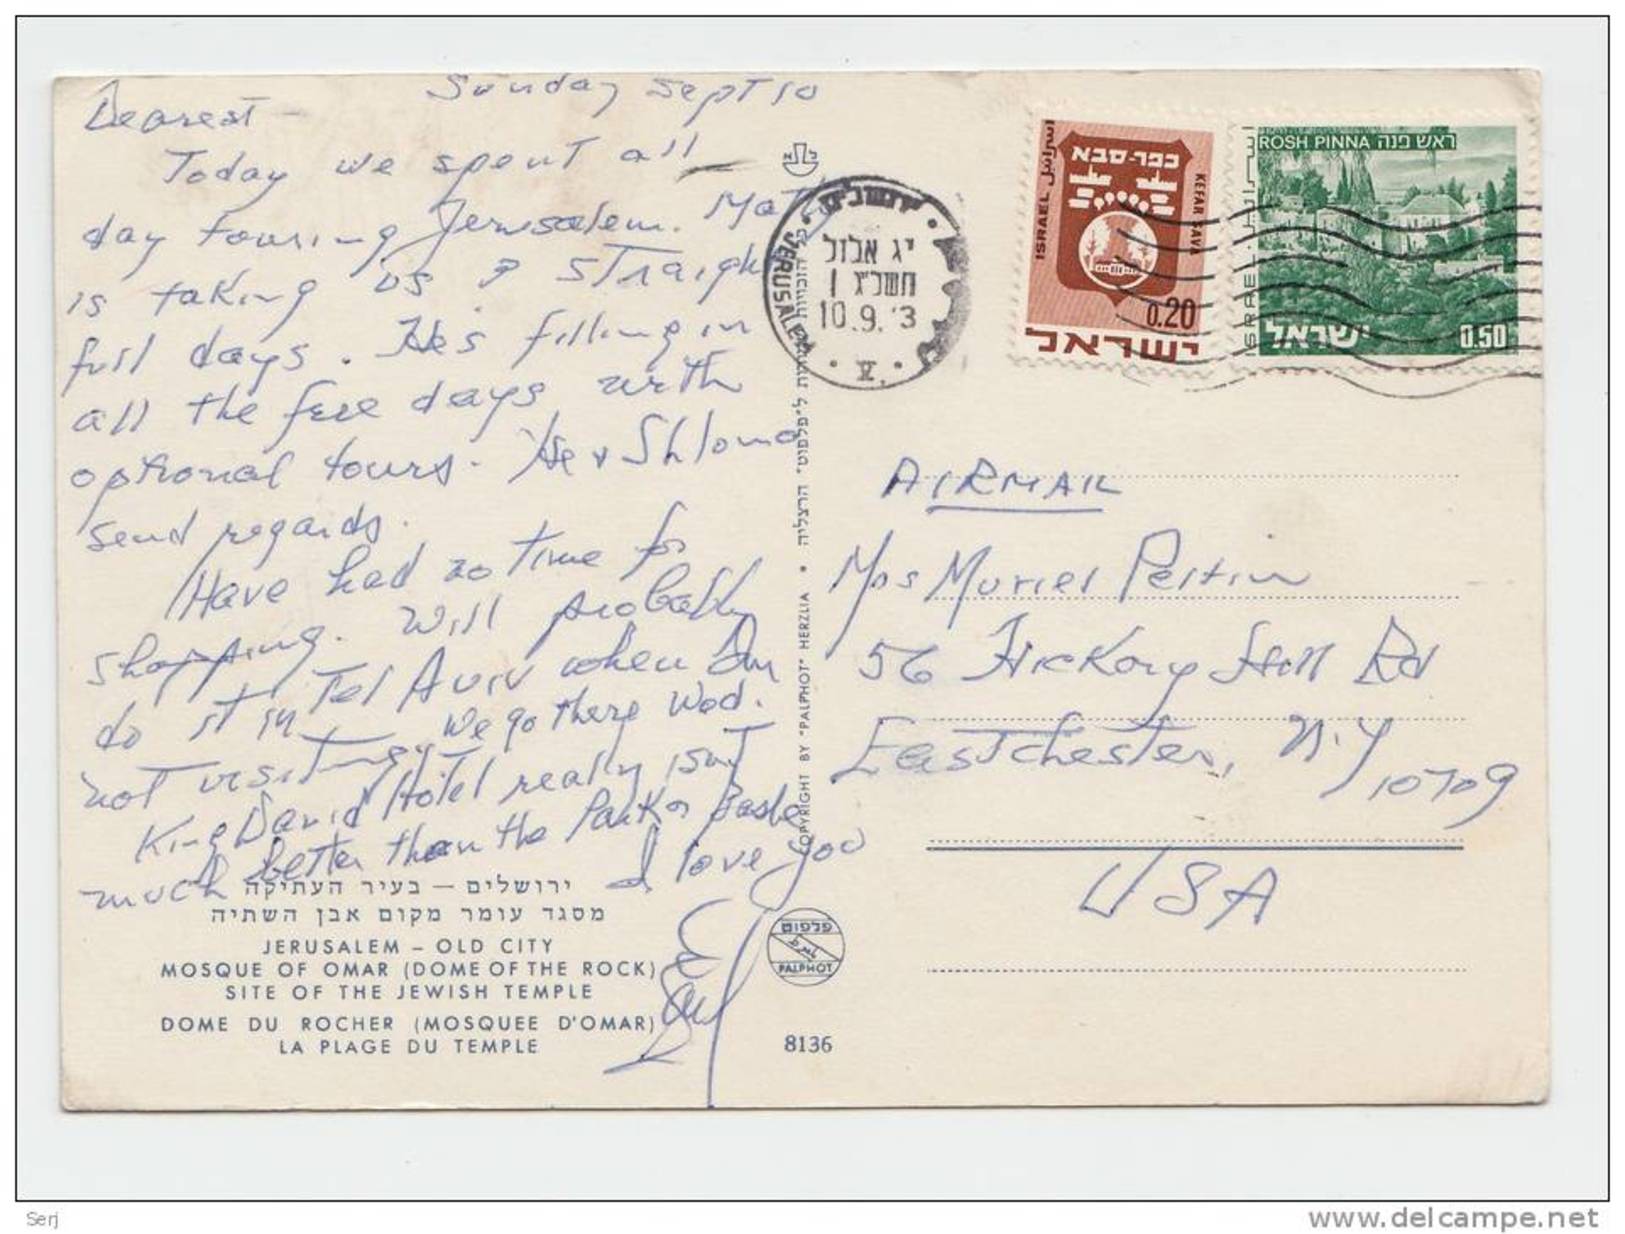 Sunday Sept 10
Dearest –
Today we spent all
day touring Jerusalem.
is taking us straight
full days. He's filling in
all the free days with
optional tours. He & Shlomo
send regards.
Have had no time for
shopping. Will probably
do it in Tel Aviv when I'm
not visiting. We go there Wed.
King David Hotel really isn't
much better than the Park or Basle
I love you
ירושלים – בעיר העתיקה
מסגד עומר מקום אבן השתיה
JERUSALEM – OLD CITY
MOSQUE OF OMAR (DOME OF THE ROCK)
SITE OF THE JEWISH TEMPLE
DOME DU ROCHER (MOSQUEE D'OMAR)
LA PLAGE DU TEMPLE
COPYRIGHT BY "PALPHOT" HERZLIA • כל הזכויות שמורות ל"פלפוט" הרצליה
פלפוט
PALPHOT
8136
ירושלים
יג אלול
תשל"ג
10.9.'3
JERUSALEM
V.
ISRAEL
כפר-סבא
KEFAR SAVA
0.20
ישראל
ROSH PINNA ראש פנה
ISRAEL
ישראל
0.50
AIRMAIL
Mrs Muriel
56 Hickory Hill Rd
Eastchester, N.Y
10709
USA
Serj
www.delcampe.net